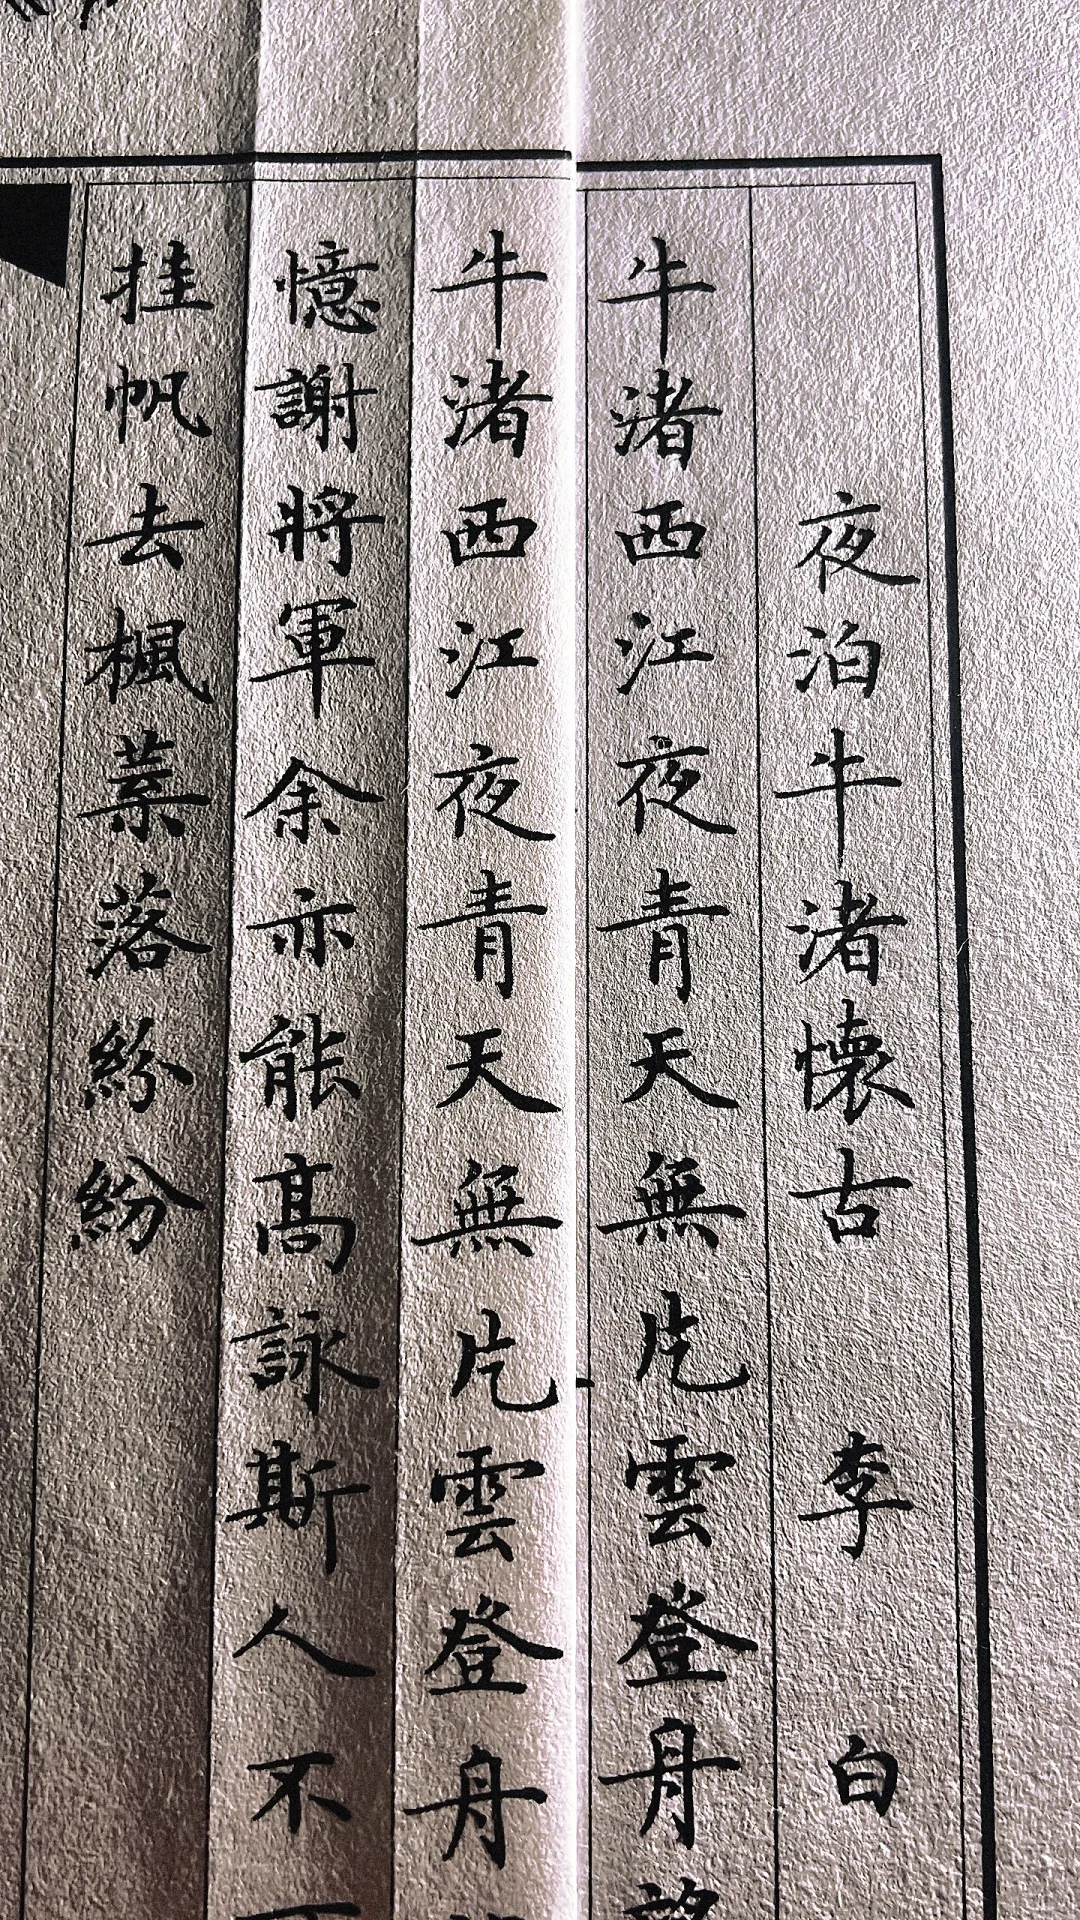 夜泊牛渚懷古 李 白
牛渚西江夜青天無片雲登舟望
牛渚西江夜青天無片雲登舟
憶謝將軍余亦能高詠斯人不
挂帆去楓葉落紛紛